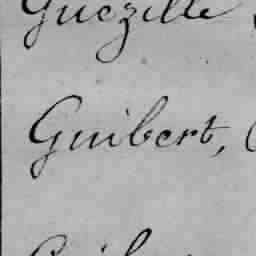 Guezille
Guibert, (